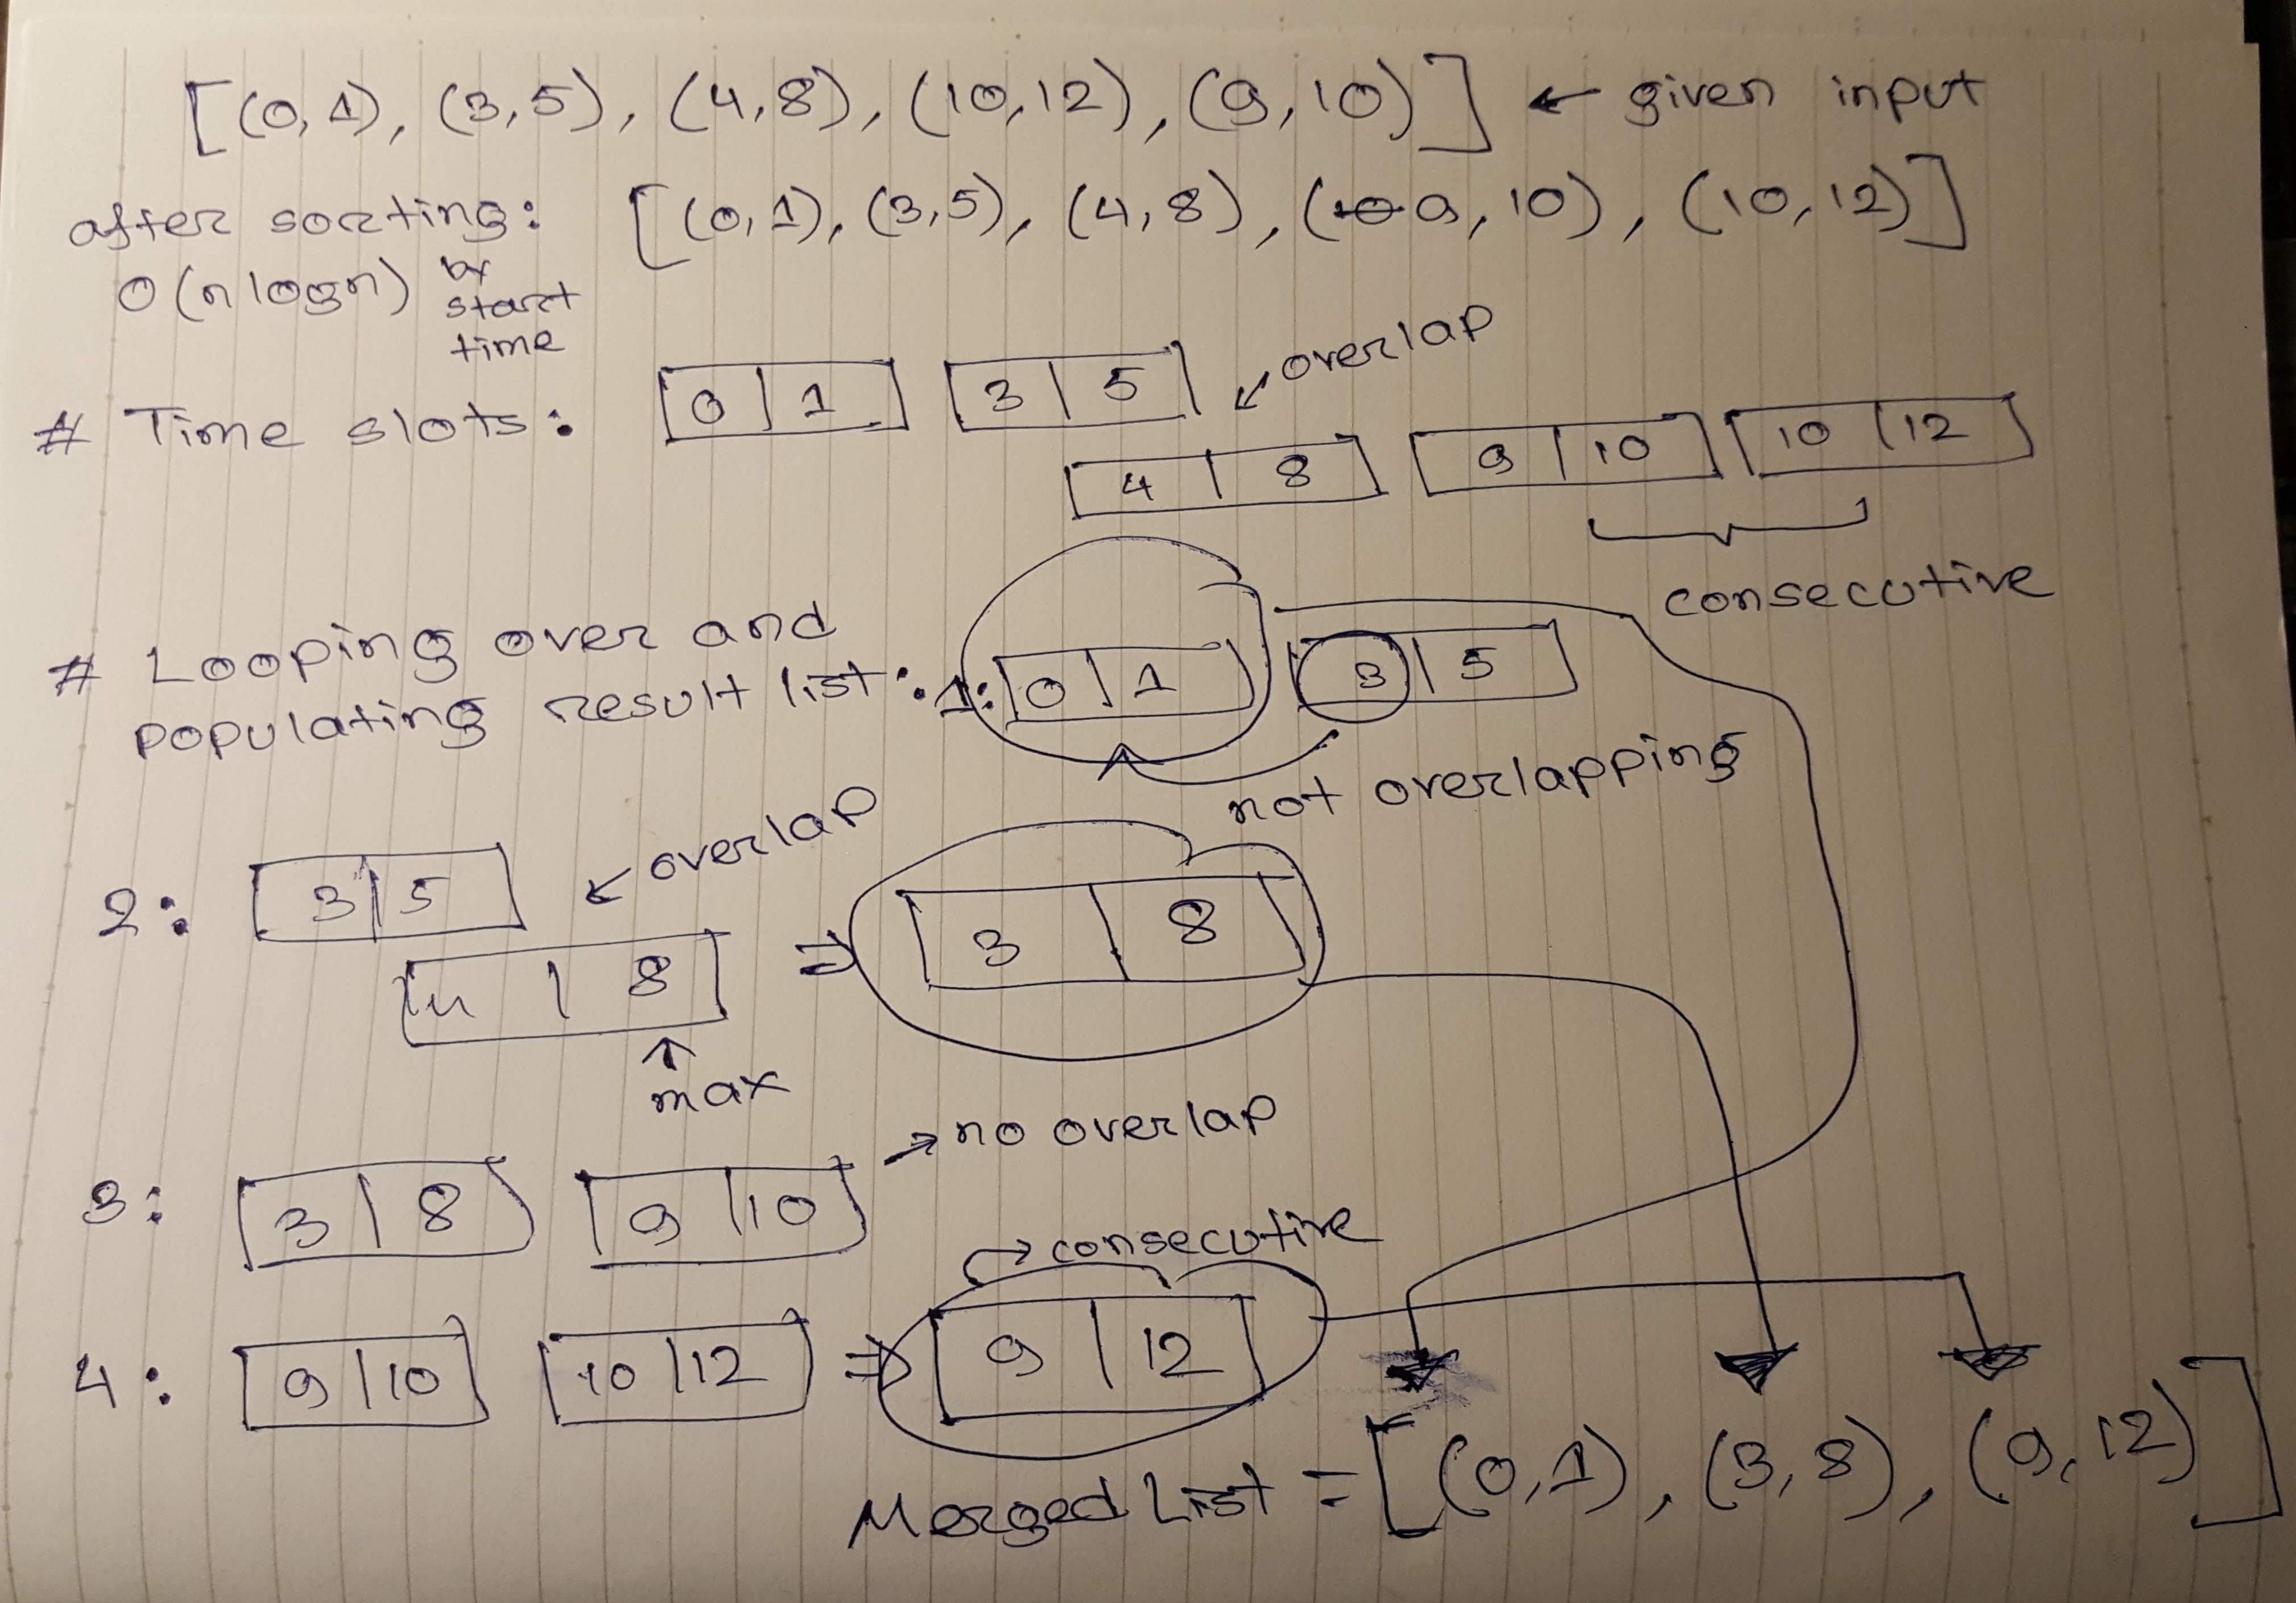 [(0, 1), (3, 5), (4, 8), (10, 12), (9, 10)] ← given input
after sorting: [(0, 1), (3, 5), (4, 8), (10 9, 10), (10, 12)]
O(n logn) by
start
time
# Time slots: 0 | 1 3 | 5 ↙ overlap
4 | 8 9 | 10 10 | 12
consecutive
# Looping over and
populating result list: 1: 0 | 1 3 | 5
not overlapping
2: 3 | 5 ↙ overlap
4 | 8 ⇒ 3 | 8
↑
max
3: 3 | 8 9 | 10 → no overlap
→ consecutive
4: 9 | 10 10 | 12 ⇒ 9 | 12
Merged List = [(0, 1), (3, 8), (9, 12)]